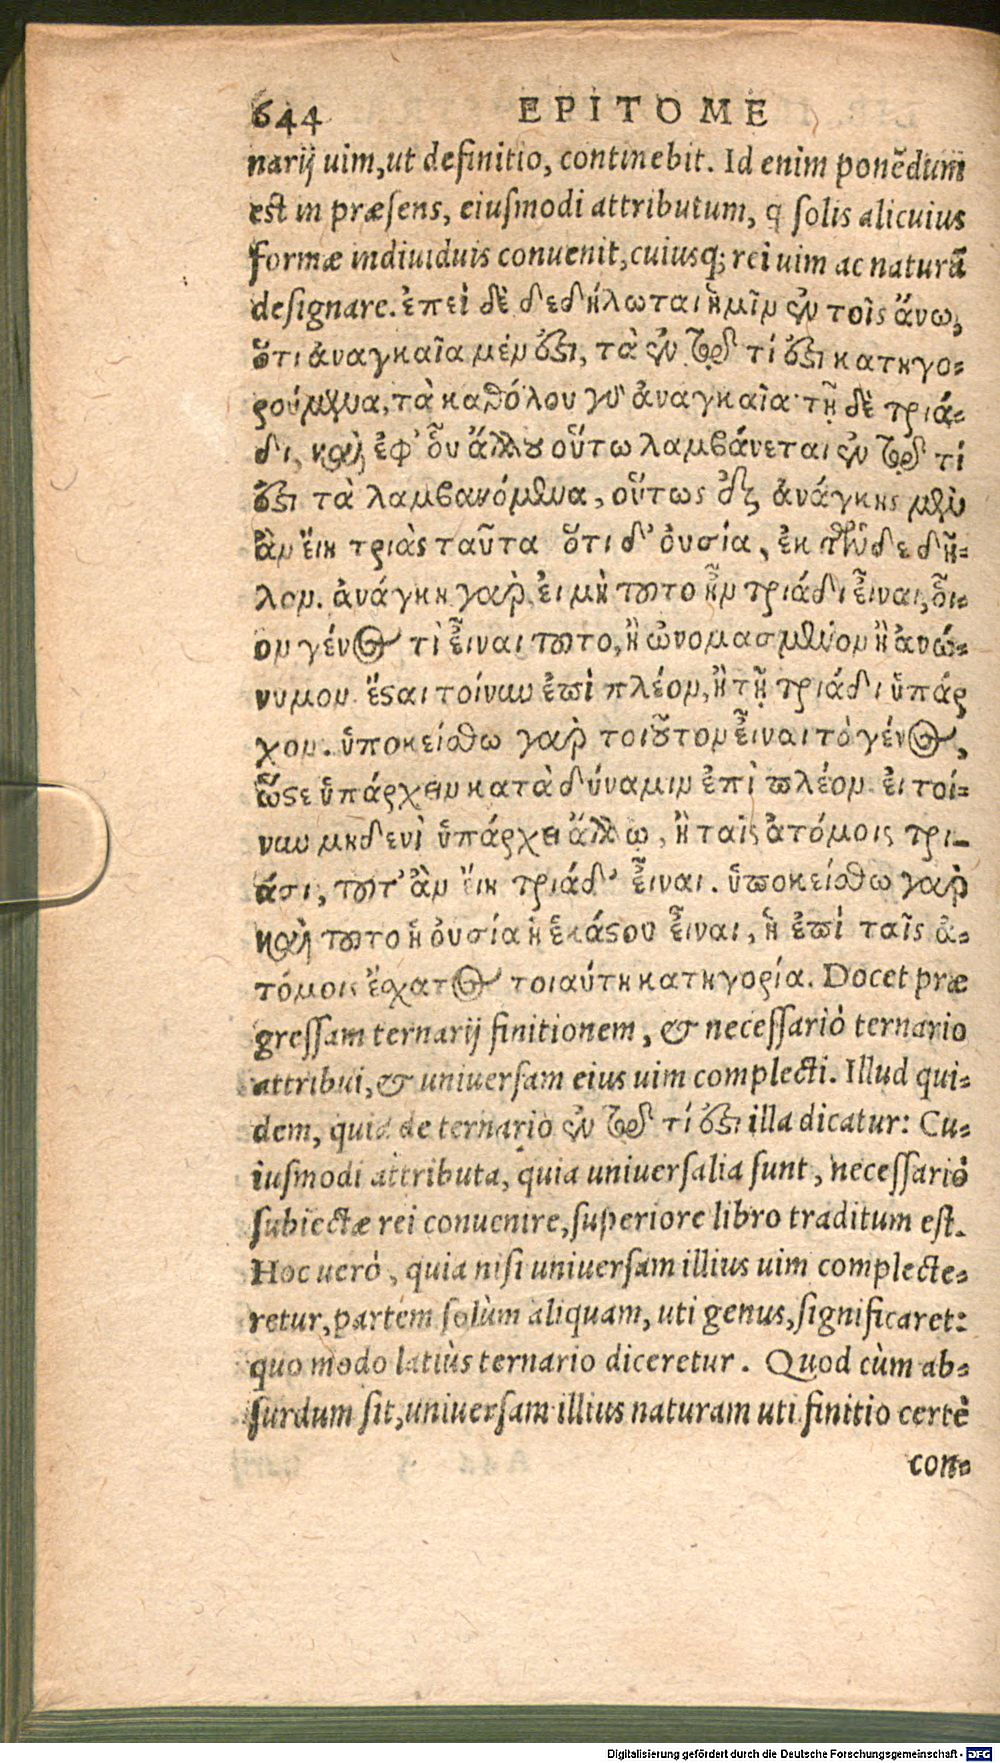 644 EPITOME
narij uim,ut definitio, continebit. Id enim ponẽdum
est in præsens, eiusmodi attributum, q̃ solis alicuius
formæ indiuiduis conuenit,cuiusq; rei uim ac naturã
designare. ἐπεὶ δὲ δεδήλωται ἡμῖν ἐν τοῖς ἄνω,
ὅτι ἀναγκαῖα μέν ὅξι, τὰ ἐν τῷ τί ὅξι κατηγο-
ρούμενα, τὰ καθόλου γδ ἀναγκαῖα· τῇ δὲ τριά-
δι, καὶ ἐφ' οὗ ἄλλου οὕτω λαμβάνεται ἐν τῷ τί
ὅξι τὰ λαμβανόμενα, οὕτως ἐξ ἀνάγκης μὲν
ἂν εἴη τριὰς ταῦτα ὅτι δ' οὐσία, ἐκ τῶνδε δῆ-
λον. ἀνάγκη γαρ, εἰ μὴ τοῦτο ἦν τριάδι εἶναι, οἷ-
ον γένος τὶ εἶναι τοῦτο, ἢ ὠνομασμένον ἢ ἀνώ-
νυμον. ἔσαι τοίνυν ἐπὶ πλέον, ἢ τῇ τριάδι ὑπάρ
χον. ὑποκείσθω γαρ τοιοῦτον εἶναι τὸ γένος,
ὥσε ὑπάρχειν κατὰ δύναμιν ἐπὶ πλέον. εἰ τοί-
νυν μηδενὶ ὑπάρχει ἄλλῳ, ἢ ταῖς ἀτόμοις τρι-
άσι, τοῦτ' ἂν εἴη τριάδ' εἶναι. ὑποκείσθω γαρ
καὶ τοῦτο ἡ οὐσία ἡ ἑκάσου εἶναι, ἡ ἐπὶ ταῖς ἀ-
τόμοις ἔσχατος τοιαύτη κατηγορία. Docet præ
gressam ternarij finitionem, & necessariò ternario
attribui,& uniuersam eius uim complecti. Illud qui-
dem, quia de ternario ἐν τῷ τί ὅξι illa dicatur: Cu-
iusmodi attributa, quia uniuersalia sunt, necessariò
subiectæ rei conuenire,superiore libro traditum est.
Hoc uerò, quia nisi uniuersam illius uim complecte-
retur,partem solùm aliquam, uti genus,significaret:
quo modo latiùs ternario diceretur. Quod cùm ab-
surdum sit,uniuersam illius naturam uti finitio certè
con-
Digitalisierung gefördert durch die Deutsche Forschungsgemeinschaft - DFG